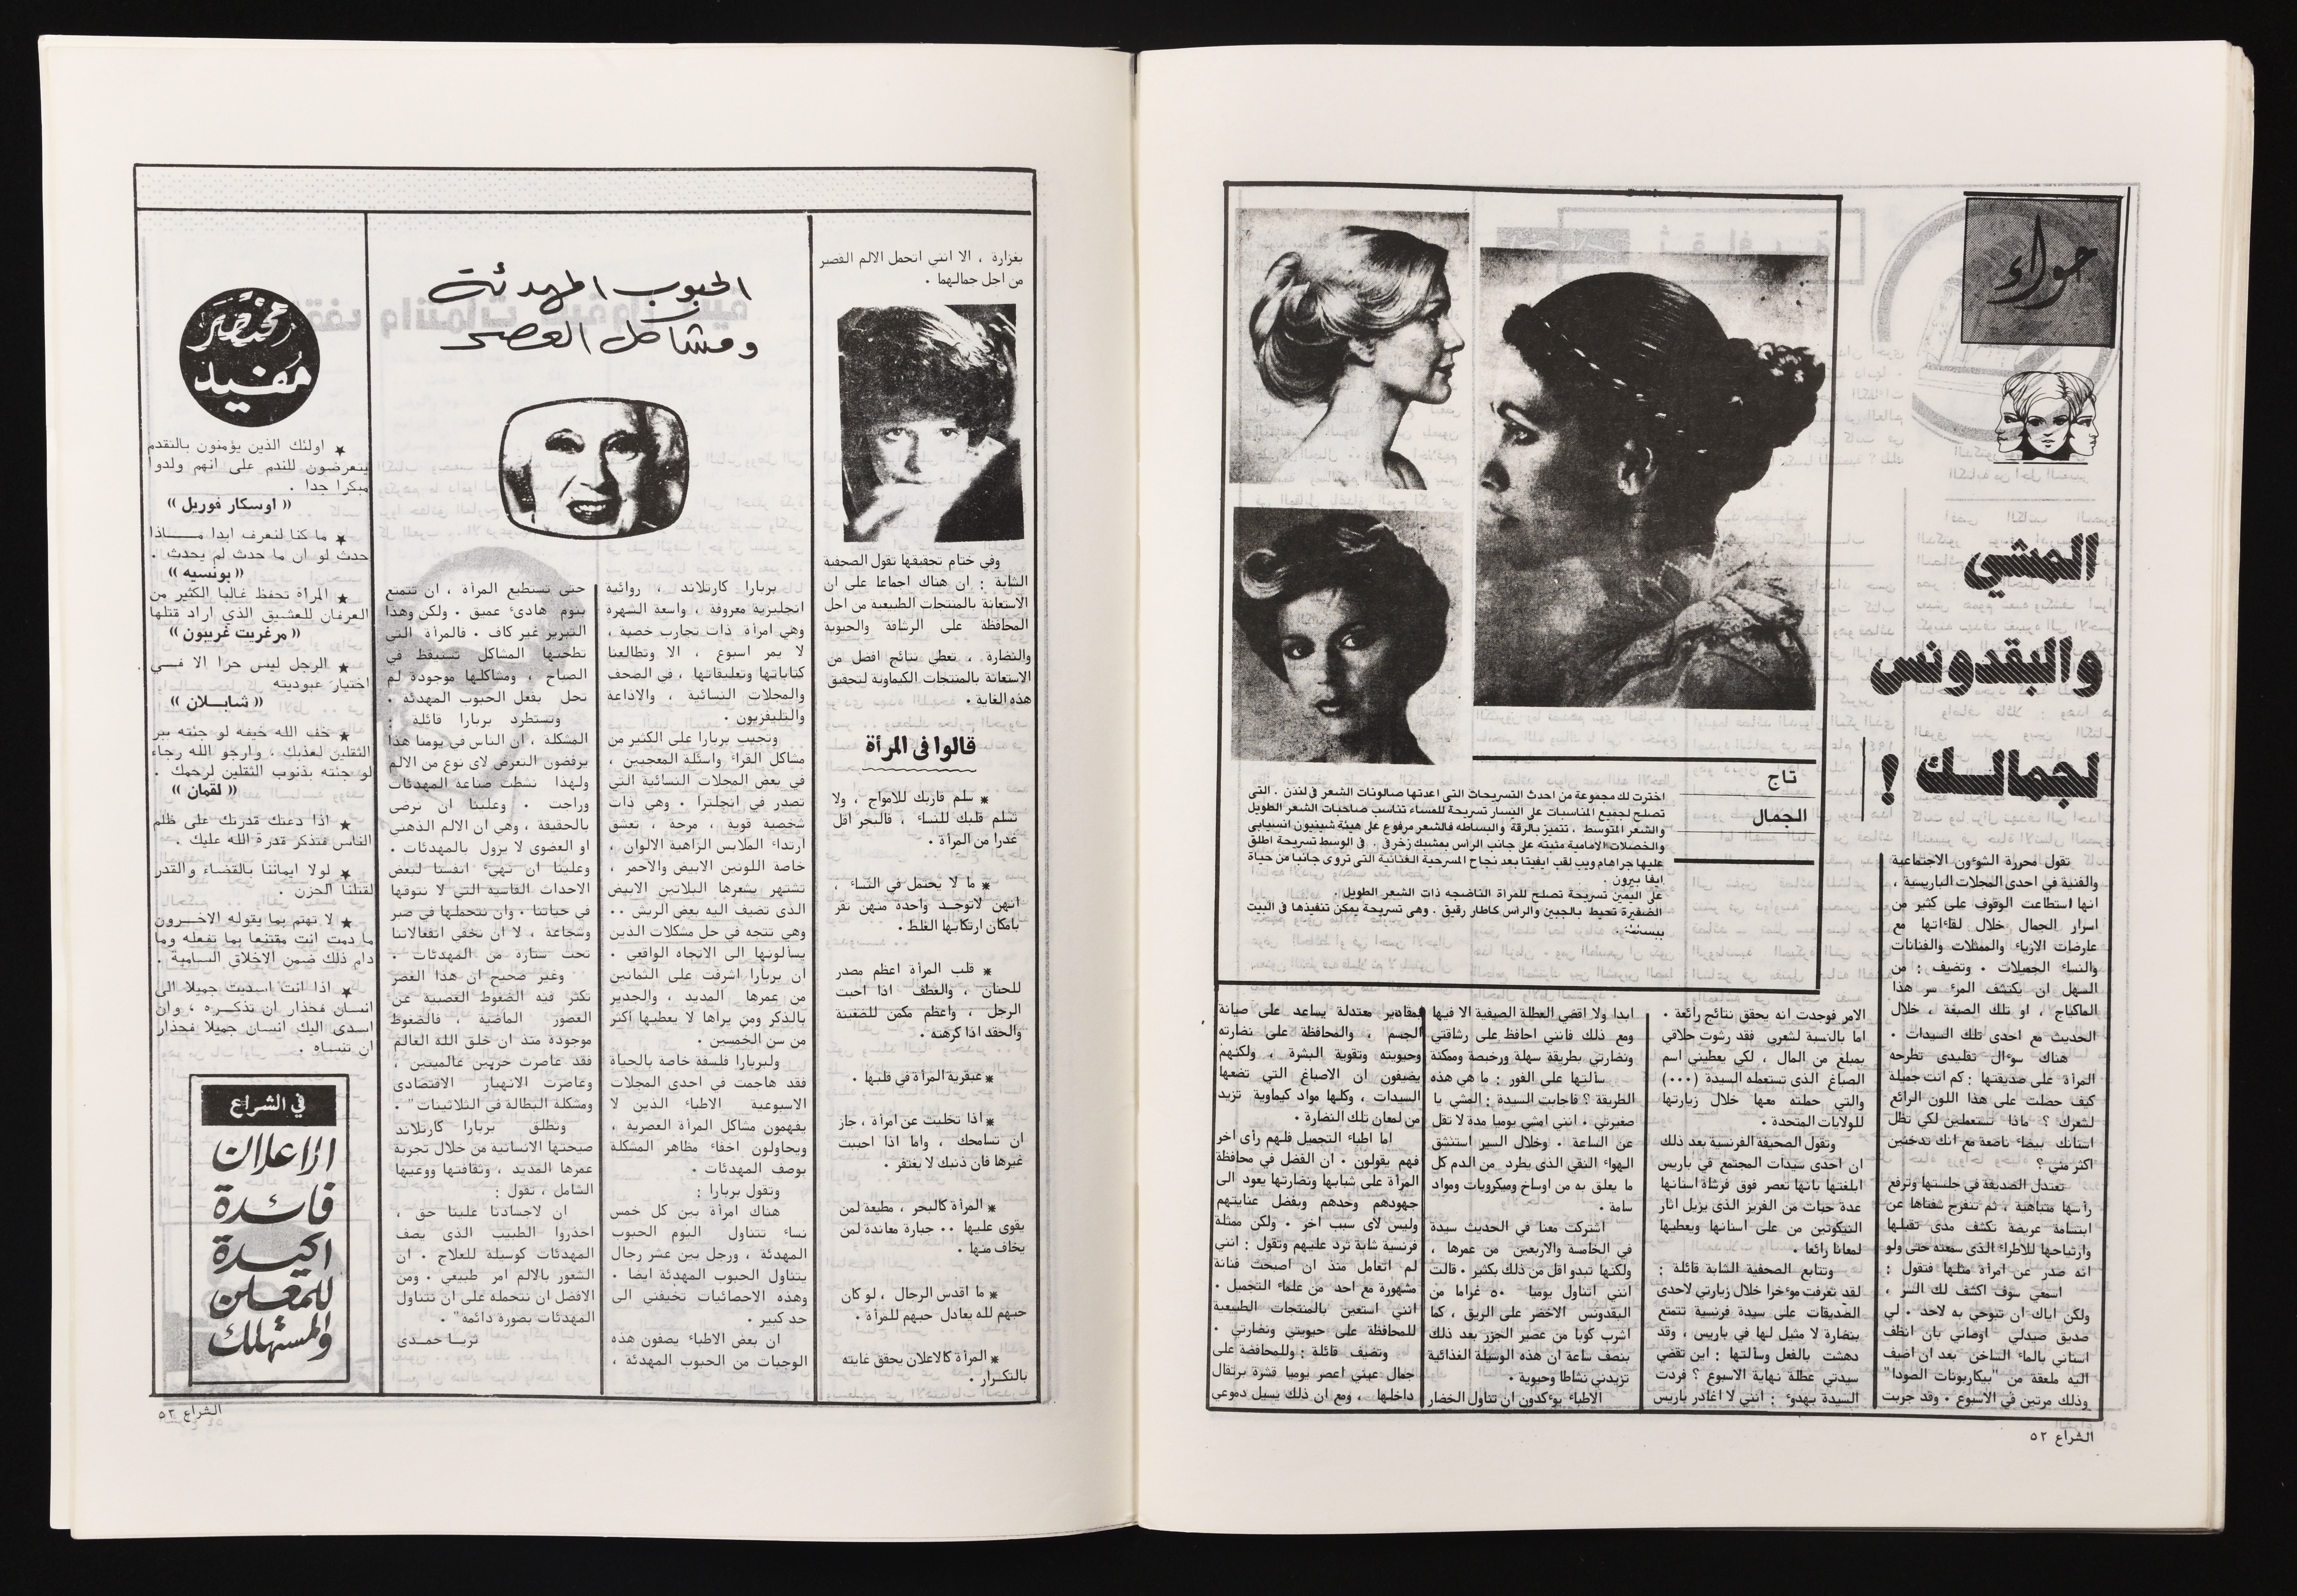 حواء
المشي
والبقدونس
لجمالك !
تقول محررة الشوءون الاجتماعية
والفنية في احدى المجلات الباريسية ،
انها استطاعت الوقوف على كثير من
اسرار الجمال خلال لقاءاتها مع
عارضات الازياء والممثلات والفنانات
والنساء الجميلات . وتضيف : من
السهل ان يكتشف المرء سر هذا
الماكياج ، او تلك الصبغة ، خلال
الحديث مع احدى تلك السيدات .
هناك سوءال تقليدى تطرحه
المرأة على صديقتها : كم انت جميلة
كيف حصلت على هذا اللون الرائع
لشعرك ؟ ماذا تستعملين لكي تظل
اسنانك بيضاء ناصعة مع انك تدخنين
اكثر مني ؟
تعتدل الصديقة في جلستها وترفع
رأسها متباهية ، ثم تنفرج شفتاها عن
ابتسامة عريضة تكشف مدى تقبلها
وارتياحها للاطراء الذى سمعته حتى ولو
انه صدر عن امرأة مثلها فتقول :
اسمعي سوف اكشف لك السر ،
ولكن اياك ان تبوحي به لاحد . لي
صديق صيدلي اوصاني بان انظف
اسناني بالماء الساخن بعد ان اضيف
اليه ملعقة من "بيكاربونات الصودا"
وذلك مرتين في الاسبوع . وقد جربت
الامر فوجدت انه يحقق نتائج رائعة .
اما بالنسبة لشعرى فقد رشوت حلاقي
بمبلغ من المال ، لكي يعطيني اسم
الصباغ الذى تستعمله السيدة (...)
والتي حملته معها خلال زيارتها
للولايات المتحدة .
وتقول الصحيفة الفرنسية بعد ذلك
ان احدى سيدات المجتمع في باريس
ابلغتها بانها تعصر فوق فرشاة اسنانها
عدة حبات من الفريز الذى يزيل اثار
النيكوتين من على اسنانها ويعطيها
لمعانا رائعا .
وتتابع الصحفية الشابة قائلة :
لقد تعرفت موءخرا خلال زيارتي لاحدى
الصديقات على سيدة فرنسية تتمتع
بنضارة لا مثيل لها في باريس ، وقد
دهشت بالفعل وسألتها : اين تقضي
سيدتي عطلة نهاية الاسبوع ؟ فردت
السيدة بهدوء : انني لا اغادر باريس
ابدا ولا اقضي العطلة الصيفية الا فيها
ومع ذلك فانني احافظ على رشاقتي
ونضارتي بطريقة سهلة ورخيصة وممكنة
سألتها على الفور : ما هي هذه
الطريقة ؟ فاجابت السيدة : المشي يا
صغيرتي . انني امشي يوميا مدة لا تقل
عن الساعة . وخلال السير استنشق
الهواء النقي الذى يطرد من الدم كل
ما يعلق به من اوساخ وميكروبات ومواد
سامة .
اشتركت معنا في الحديث سيدة
في الخامسة والاربعين من عمرها ،
ولكنها تبدو اقل من ذلك بكثير . قالت
انني اتناول يوميا ٥٠ غراما من
البقدونس الاخضر على الريق ، كما
اشرب كوبا من عصير الجزر بعد ذلك
بنصف ساعة ان هذه الوسيلة الغذائية
تزيدني نشاطا وحيوية .
الاطباء يوءكدون ان تناول الخضار
بمقادير معتدلة يساعد على صيانة
الجسم ، والمحافظة على نضارته
وحيويته وتقوية البشرة ، ولكنهم
يضيفون ان الاصباغ التي تضعها
السيدات ، وكلها مواد كيماوية تزيد
من لمعان تلك النضارة .
اما اطباء التجميل فلهم رأى اخر
فهم يقولون . ان الفضل في محافظة
المرأة على شبابها ونضارتها يعود الى
جهودهم وحدهم وبفضل عنايتهم
وليس لاى سبب اخر . ولكن ممثلة
فرنسية شابة ترد عليهم وتقول : انني
لم اتعامل منذ ان اصبحت فنانة
مشهورة مع احد من علماء التجميل .
انني استعين بالمنتجات الطبيعية
للمحافظة على حيويتي ونضارتي .
وتضيف قائلة : وللمحافضة على
جمال عيني اعصر يوميا قشرة برتقال
داخلها ، ومع ان ذلك يسيل دموعي
تاج
الجمال
اخترت لك مجموعة من احدث التسريحات التى اعدتها صالونات الشعر فى لندن . التى
تصلح لجميع المناسبات على اليسار تسريحة للمساء تناسب صاحبات الشعر الطويل
والشعر المتوسط . تتميز بالرقة والبساطه فالشعر مرفوع على هيئة شينيون انسيابى
والخصلات الامامية مثبته على جانب الراس بمشبك زخرفى . فى الوسط تسريحة اطلق
عليها جراهام ويب لقب ايفيتا بعد نجاح المسرحية الغنائية التى تروى جانبا من حياة
ايفا بيرون .
على اليمين تسريحة تصلح للمرأة الناضجه ذات الشعر الطويل .
الضفيرة تحيط بالجبين والراس كاطار رقيق . وهى تسريحة يمكن تنفيذها فى البيت
الشراع ٥٢
بغزارة ، الا انني اتحمل الالم القصير
من اجل جمالهما .
وفي ختام تحقيقها تقول الصحفية
الشابة : ان هناك اجماعا على ان
الاستعانة بالمنتجات الطبيعية من اجل
المحافظة على الرشاقة والحيوية
والنضارة ، تعطي نتائج افضل من
الاستعانة بالمنتجات الكيماوية لتحقيق
هذه الغاية .
قالوا فى المرأة
* سلم قاربك للامواج ، ولا
تسلم قلبك للنساء ، فالبحر اقل
غدرا من المرأة .
* ما لا يحتمل في النساء ،
انهن لاتوجد واحدة منهن تقر
بامكان ارتكابها الغلط .
* قلب المرأة اعظم مصدر
للحنان ، والعطف اذا احبت
الرجل ، واعظم مكمن للضغينة
والحقد اذا كرهته .
* عبقرية المرأة في قلبها .
* اذا تخليت عن امرأة ، جاز
ان تسامحك ، واما اذا احببت
غيرها فان ذنبك لا يغتفر .
* المرأة كالبحر ، مطيعة لمن
يقوى عليها .. جبارة معاندة لمن
يخاف منها .
* ما اقدس الرجال ، لو كان
حبهم لله يعادل حبهم للمرأة .
* المرأة كالاعلان يحقق غايته
بالتكرار .
الحبوب المهدئة
ومشاكل العصر
بربارا كارتلاند ، روائية
انجليزية معروفة ، واسعة الشهرة
وهي امرأة ذات تجارب خصبة ،
لا يمر اسبوع ، الا وتطالعنا
كتاباتها وتعليقاتها ، في الصحف
والمجلات النسائية ، والاذاعة
والتليفزيون .
وتجيب بربارا على الكثير من
مشاكل القراء واسئلة المعجبين ،
في بعض المجلات النسائية التي
تصدر في انجلترا . وهي ذات
شخصية قوية ، مرحة ، تعشق
ارتداء الملابس الزاهية الالوان ،
خاصة اللونين الابيض والاحمر ،
تشتهر بشعرها البلاتين الابيض
الذى تضيف اليه بعض الريش ..
وهي تتجه في حل مشكلات الذين
يسألونها الى الاتجاه الواقعي .
ان بربارا اشرفت على الثمانين
من عمرها المديد ، والجدير
بالذكر ومن يراها لا يعطيها اكثر
من سن الخمسين .
ولبربارا فلسفة خاصة بالحياة
فقد هاجمت في احدى المجلات
الاسبوعية الاطباء الذين لا
يفهمون مشاكل المرأة العصرية ،
ويحاولون اخفاء مظاهر المشكلة
بوصف المهدئات .
وتقول بربارا :
هناك امرأة بين كل خمس
نساء تتناول اليوم الحبوب
المهدئة ، ورجل بين عشر رجال
يتناول الحبوب المهدئة ايضا .
وهذه الاحصائيات تخيفني الى
حد كبير .
ان بعض الاطباء يصفون هذه
الوجبات من الحبوب المهدئة ،
حتى تستطيع المرأة ، ان تتمتع
بنوم هادىء عميق . ولكن وهذا
التبرير غير كاف . فالمرأة التي
تطحنها المشاكل تستيقظ في
الصباح ، ومشاكلها موجودة لم
تحل بفعل الحبوب المهدئة .
وتستطرد بربارا قائلة :
المشكلة ، ان الناس في يومنا هذا
يرفضون التعرض لاى نوع من الالم
ولهذا نشطت صناعة المهدئات
وراجت . وعلينا ان نرضى
بالحقيقة ، وهي ان الالم الذهني
او العضوى لا يزول بالمهدئات .
وعلينا ان نهيىء انفسنا لبعض
الاحداث القاسية التي لا نتوقعها
في حياتنا . وان نتحملها في صبر
وشجاعة ، لا ان نخفي انفعالاتنا
تحت ستارة من المهدئات .
وغير صحيح ان هذا العصر
تكثر فيه الضغوط العصبية عن
العصور الماضية ، فالضغوط
موجودة منذ ان خلق الله العالم
فقد عاصرت حربين عالميتين ،
وعاصرت الانهيار الاقتصادى
ومشكلة البطالة في الثلاثينات" .
وتطلق بربارا كارتلاند
صيحتها الانسانية من خلال تجربة
عمرها المديد ، وثقافتها ووعيها
الشامل ، تقول :
ان لاجسادنا علينا حق ،
احذروا الطبيب الذى يصف
المهدئات كوسيلة للعلاج . ان
الشعور بالالم امر طبيعي . ومن
الافضل ان نتحمله على ان نتناول
المهدئات بصورة دائمة" .
ثريا حمدى
مختصر
مفيد
★ اولئك الذين يؤمنون بالتقدم
يتعرضون للندم على انهم ولدوا
مبكرا جدا .
(( اوسكار فوريل ))
★ ما كنا لنعرف ابدا ماذا
حدث لو ان ما حدث لم يحدث .
(( بونسيه ))
★ المرأة تحفظ غالبا الكثير من
العرفان للعشيق الذي اراد قتلها
(( مرغريت غريبون ))
★ الرجل ليس حرا الا في
اختيار عبوديته
(( شابلان ))
★ خف الله خيفة لو جئته ببر
الثقلين لعذبك ، وارجو الله رجاء
لو جئته بذنوب الثقلين لرحمك .
(( لقمان ))
★ اذا دعتك قدرتك على ظلم
الناس فتذكر قدرة الله عليك .
★ لولا ايماننا بالقضاء والقدر
لقتلنا الحزن .
★ لا تهتم بما يقوله الاخرون
ما دمت انت مقتنعا بما تفعله وما
دام ذلك ضمن الاخلاق السامية .
★ اذا انت اسديت جميلا الى
انسان فحذار ان تذكره ، وان
اسدى اليك انسان جميلا فحذار
ان تنساه .
في الشراع
الاعلان
فائدة
اكيدة
للمعلن
والمستهلك
الشراع ٥٣